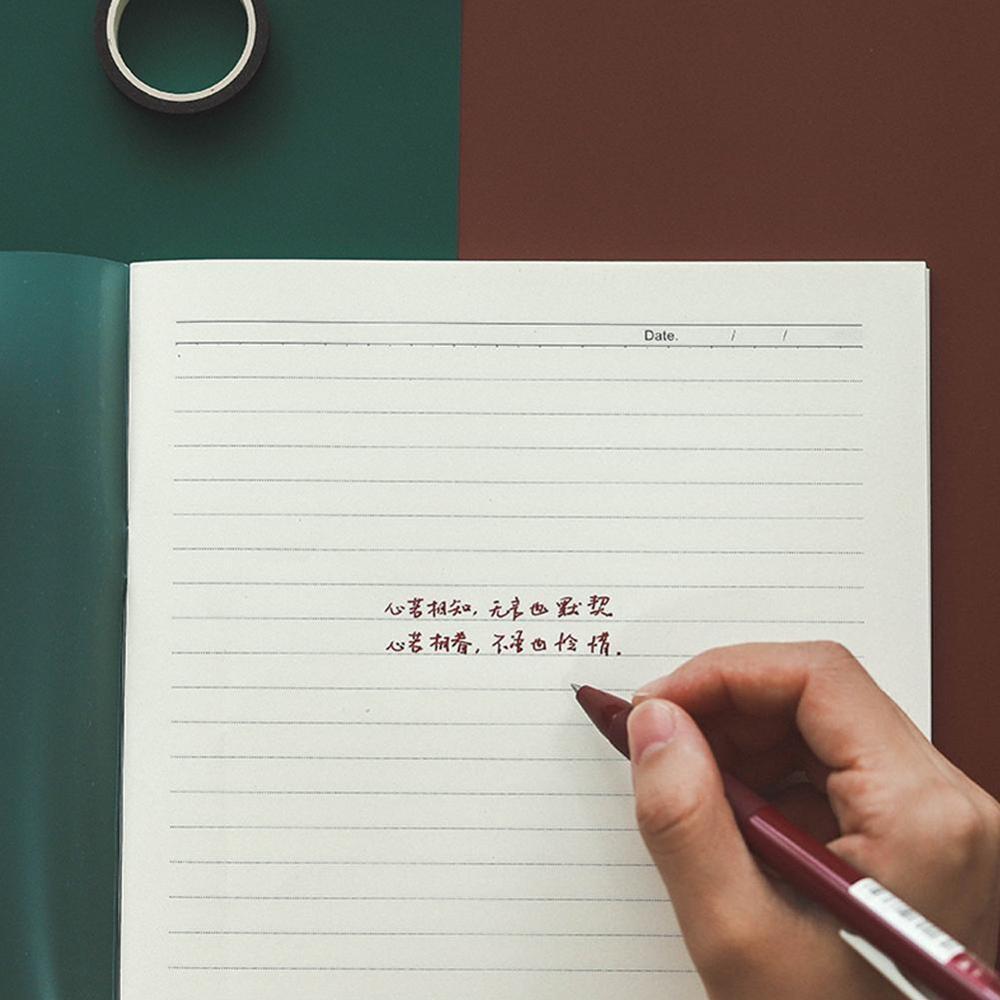 Date. / /
心若相知，无言也默契
心若相眷，不语也怜惜.